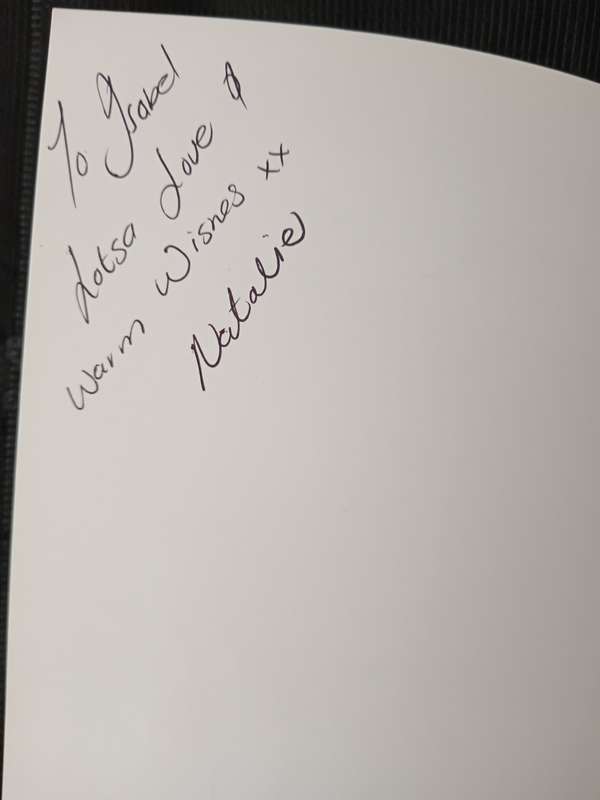 To Isabel
Lotsa Love &
Warm Wishes xx
Natalie